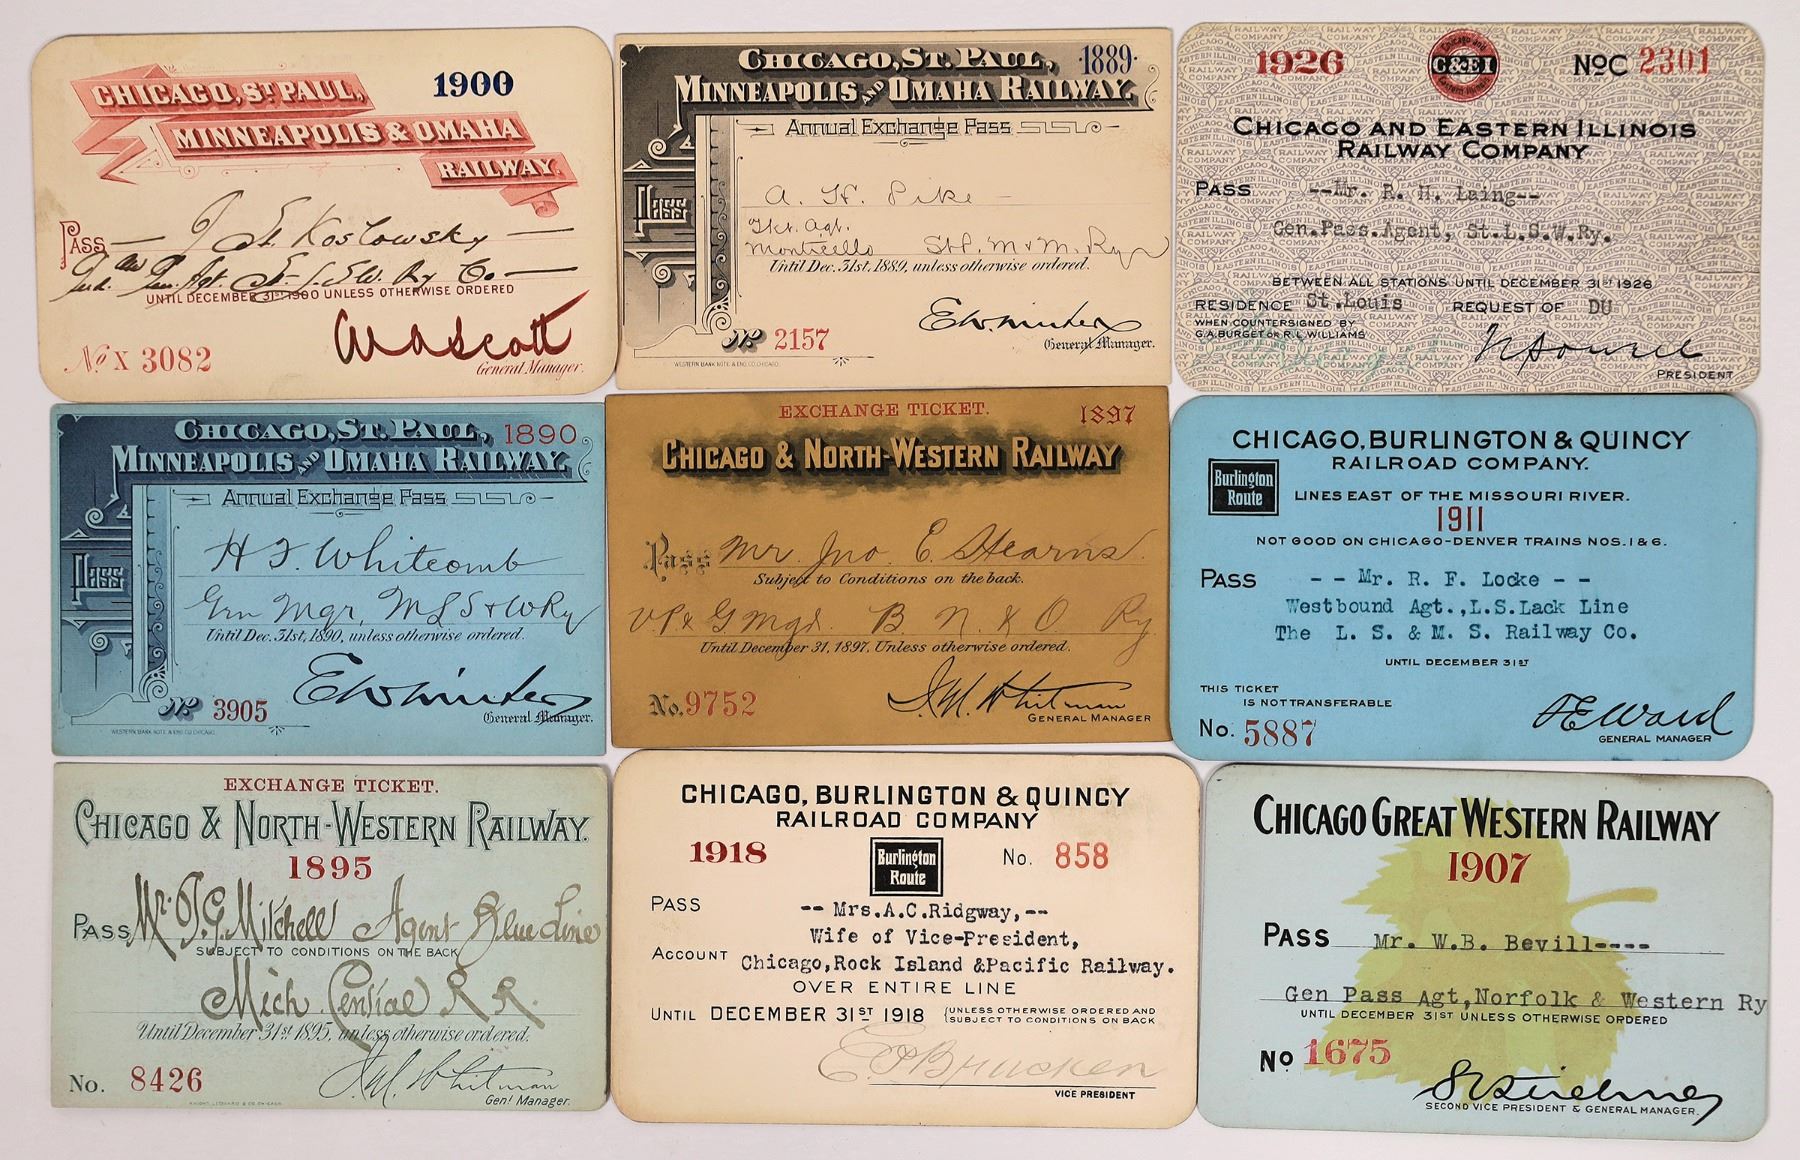 CHICAGO, ST PAUL,
1900
MINNEAPOLIS & OMAHA
RAILWAY.
PASS — J St. Koslowsky —
UNTIL DECEMBER 31ST 1900 UNLESS OTHERWISE ORDERED
No X 3082
WAScott
General Manager.
CHICAGO, ST. PAUL,
1889
MINNEAPOLIS AND OMAHA RAILWAY.
Annual Exchange Pass
Pass
A. H. Pike
Tkt. Agt.
Monticello St P. M & M. Ry
Until Dec. 31st, 1889, unless otherwise ordered.
No 2157
EWWinter
General Manager.
WESTERN BANK NOTE & ENG. CO. CHICAGO.
1926
Chicago and
C&EI
Eastern Illinois
No C 2301
CHICAGO AND EASTERN ILLINOIS
RAILWAY COMPANY
PASS --Mr. R. H. Laing--
Gen.Pass.Agent, St.L.S.W.Ry.
BETWEEN ALL STATIONS UNTIL DECEMBER 31ST 1926
RESIDENCE St.Louis REQUEST OF DU
WHEN COUNTERSIGNED BY
G.A. BURGET OR R.L. WILLIAMS
PRESIDENT
CHICAGO, ST. PAUL,
1890
MINNEAPOLIS AND OMAHA RAILWAY.
Annual Exchange Pass
Pass
H F. Whitcomb
Gen Mgr, M L S & W Ry
Until Dec. 31st, 1890, unless otherwise ordered.
No 3905
EWWinter
General Manager.
WESTERN BANK NOTE & ENG. CO. CHICAGO.
EXCHANGE TICKET.
1897
CHICAGO & NORTH-WESTERN RAILWAY
Pass Mr. Jno. E. Stearns
Subject to Conditions on the back.
VP & G Mgr. B N & O Ry
Until December 31, 1897, Unless otherwise ordered.
No. 9752
J.M. Whitman
GENERAL MANAGER
CHICAGO, BURLINGTON & QUINCY
RAILROAD COMPANY.
Burlington
Route
LINES EAST OF THE MISSOURI RIVER.
1911
NOT GOOD ON CHICAGO-DENVER TRAINS NOS. 1 & 6.
PASS -- Mr. R. F. Locke --
Westbound Agt.,L.S.Lack Line
The L. S. & M. S. Railway Co.
UNTIL DECEMBER 31ST
THIS TICKET
IS NOT TRANSFERABLE
No. 5887
FEWard
GENERAL MANAGER
EXCHANGE TICKET.
CHICAGO & NORTH-WESTERN RAILWAY.
1895
PASS Mr. T.G. Mitchell Agent Blue Line
SUBJECT TO CONDITIONS ON THE BACK
Mich Central R R.
Until December 31st 1895, unless otherwise ordered.
No. 8426
J.M. Whitman
Genl Manager.
KNIGHT, LEONARD & CO. CHICAGO.
CHICAGO, BURLINGTON & QUINCY
RAILROAD COMPANY
1918
Burlington
Route
No. 858
PASS -- Mrs.A.C.Ridgway,--
Wife of Vice-President,
ACCOUNT Chicago,Rock Island &Pacific Railway.
OVER ENTIRE LINE
UNTIL DECEMBER 31ST 1918 (UNLESS OTHERWISE ORDERED AND
SUBJECT TO CONDITIONS ON BACK
E P Bracken
VICE PRESIDENT
CHICAGO GREAT WESTERN RAILWAY
1907
PASS Mr. W.B. Bevill----
Gen Pass Agt,Norfolk & Western Ry
UNTIL DECEMBER 31ST UNLESS OTHERWISE ORDERED
No 1675
SECOND VICE PRESIDENT & GENERAL MANAGER.